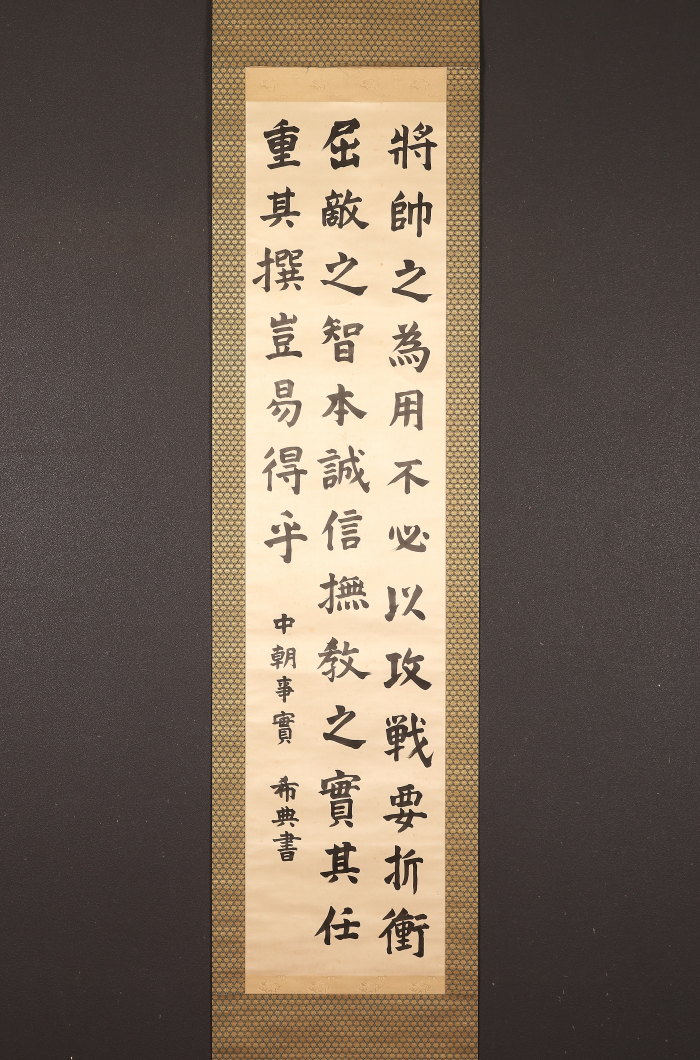 將帥之為用不必以攻戦要折衝
屈敵之智本誠信撫教之實其任
重其撰豈易得乎
中朝事實 希典書